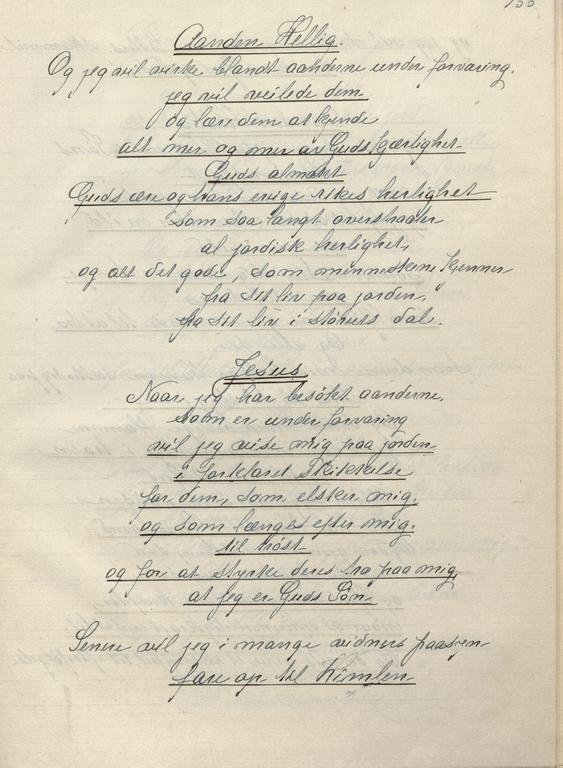 Aanden Hellig.
Og jeg vil virke blandt aanderne under forvaring.
jeg vil veilede dem
og lære dem at kjende
alt mer og mer av Guds kjærlighet
Guds almakt
Guds ære og hans evige rikes herlighet
som saa langt overstraaler
al jordisk herlighet,
og alt det gode, som menneskene kjenner
fra sit liv paa jorden,
fra sit liv i støvets dal.
Jesus.
Naar jeg har besøkt aanderne.
som er under forvaring
vil jeg vise mig paa jorden
i forklaret Skikkelse
for dem, som elsker mig.
og som længes efter mig.
til trøst
og for at styrke deres tro paa mig,
at jeg er Guds Søn
Senere vil jeg i mange vidners paasyn
fare op til Himlen